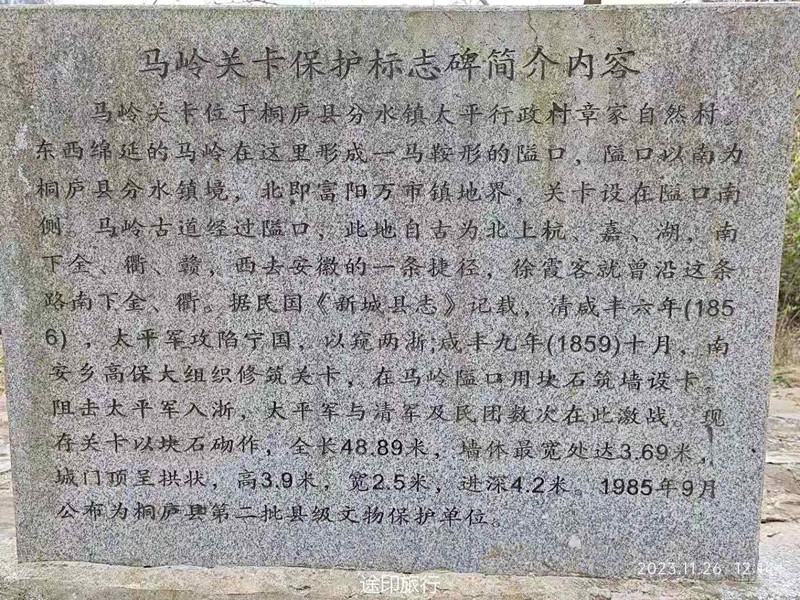 马岭关卡保护标志碑简介内容
马岭关卡位于桐庐县分水镇太平行政村章家自然村。
东西绵延的马岭在这里形成一马鞍形的隘口，隘口以南为
桐庐县分水镇境，北即富阳万市镇地界，关卡设在隘口南
侧。马岭古道经过隘口，此地自古为北上杭、嘉、湖，南
下金、衢、赣，西去安徽的一条捷径，徐霞客就曾沿这条
路南下金、衢。据民国《新城县志》记载，清咸丰六年(185
6)，太平军攻陷宁国，以窥两浙;咸丰九年(1859)十月，南
安乡高保大组织修筑关卡，在马岭隘口用块石筑墙设卡，
阻击太平军入浙，太平军与清军及民团数次在此激战。现
存关卡以块石砌作，全长48.89米，墙体最宽处达3.69米，
城门顶呈拱状，高3.9米，宽2.5米，进深4.2米。1985年9月
公布为桐庐县第二批县级文物保护单位。
2023.11.26
途印旅行